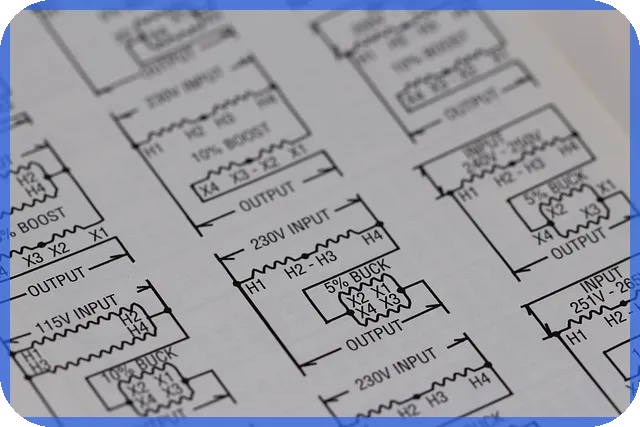 OUTPUT
230V INPUT
H1 H2 H3 H4
10% BOOST
X4 X3 - X2 X1
OUTPUT
10% BOOST
OUTPUT
INPUT
240V - 250V
H1 H2 - H3 H4
5% BUCK
X2 X1
X4 X3
OUTPUT
H2
H4
% BOOST
X3 X2 X1
OUTPUT
230V INPUT
H1 H2 - H3 H4
5% BUCK
X2 X1
X4 X3
OUTPUT
INPUT
251V - 265
H1 H2 -
115V INPUT
H1 H2
H3 H4
10% BUCK
X2 X1
X4 X3
230V INPUT
H2 H3 H4